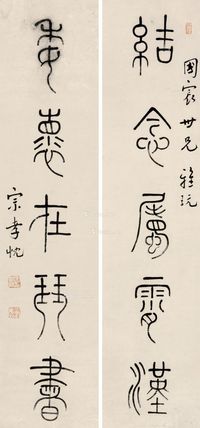 國宸世兄 雅玩
結念屬霄漢
委懷在琴書
宗孝忱